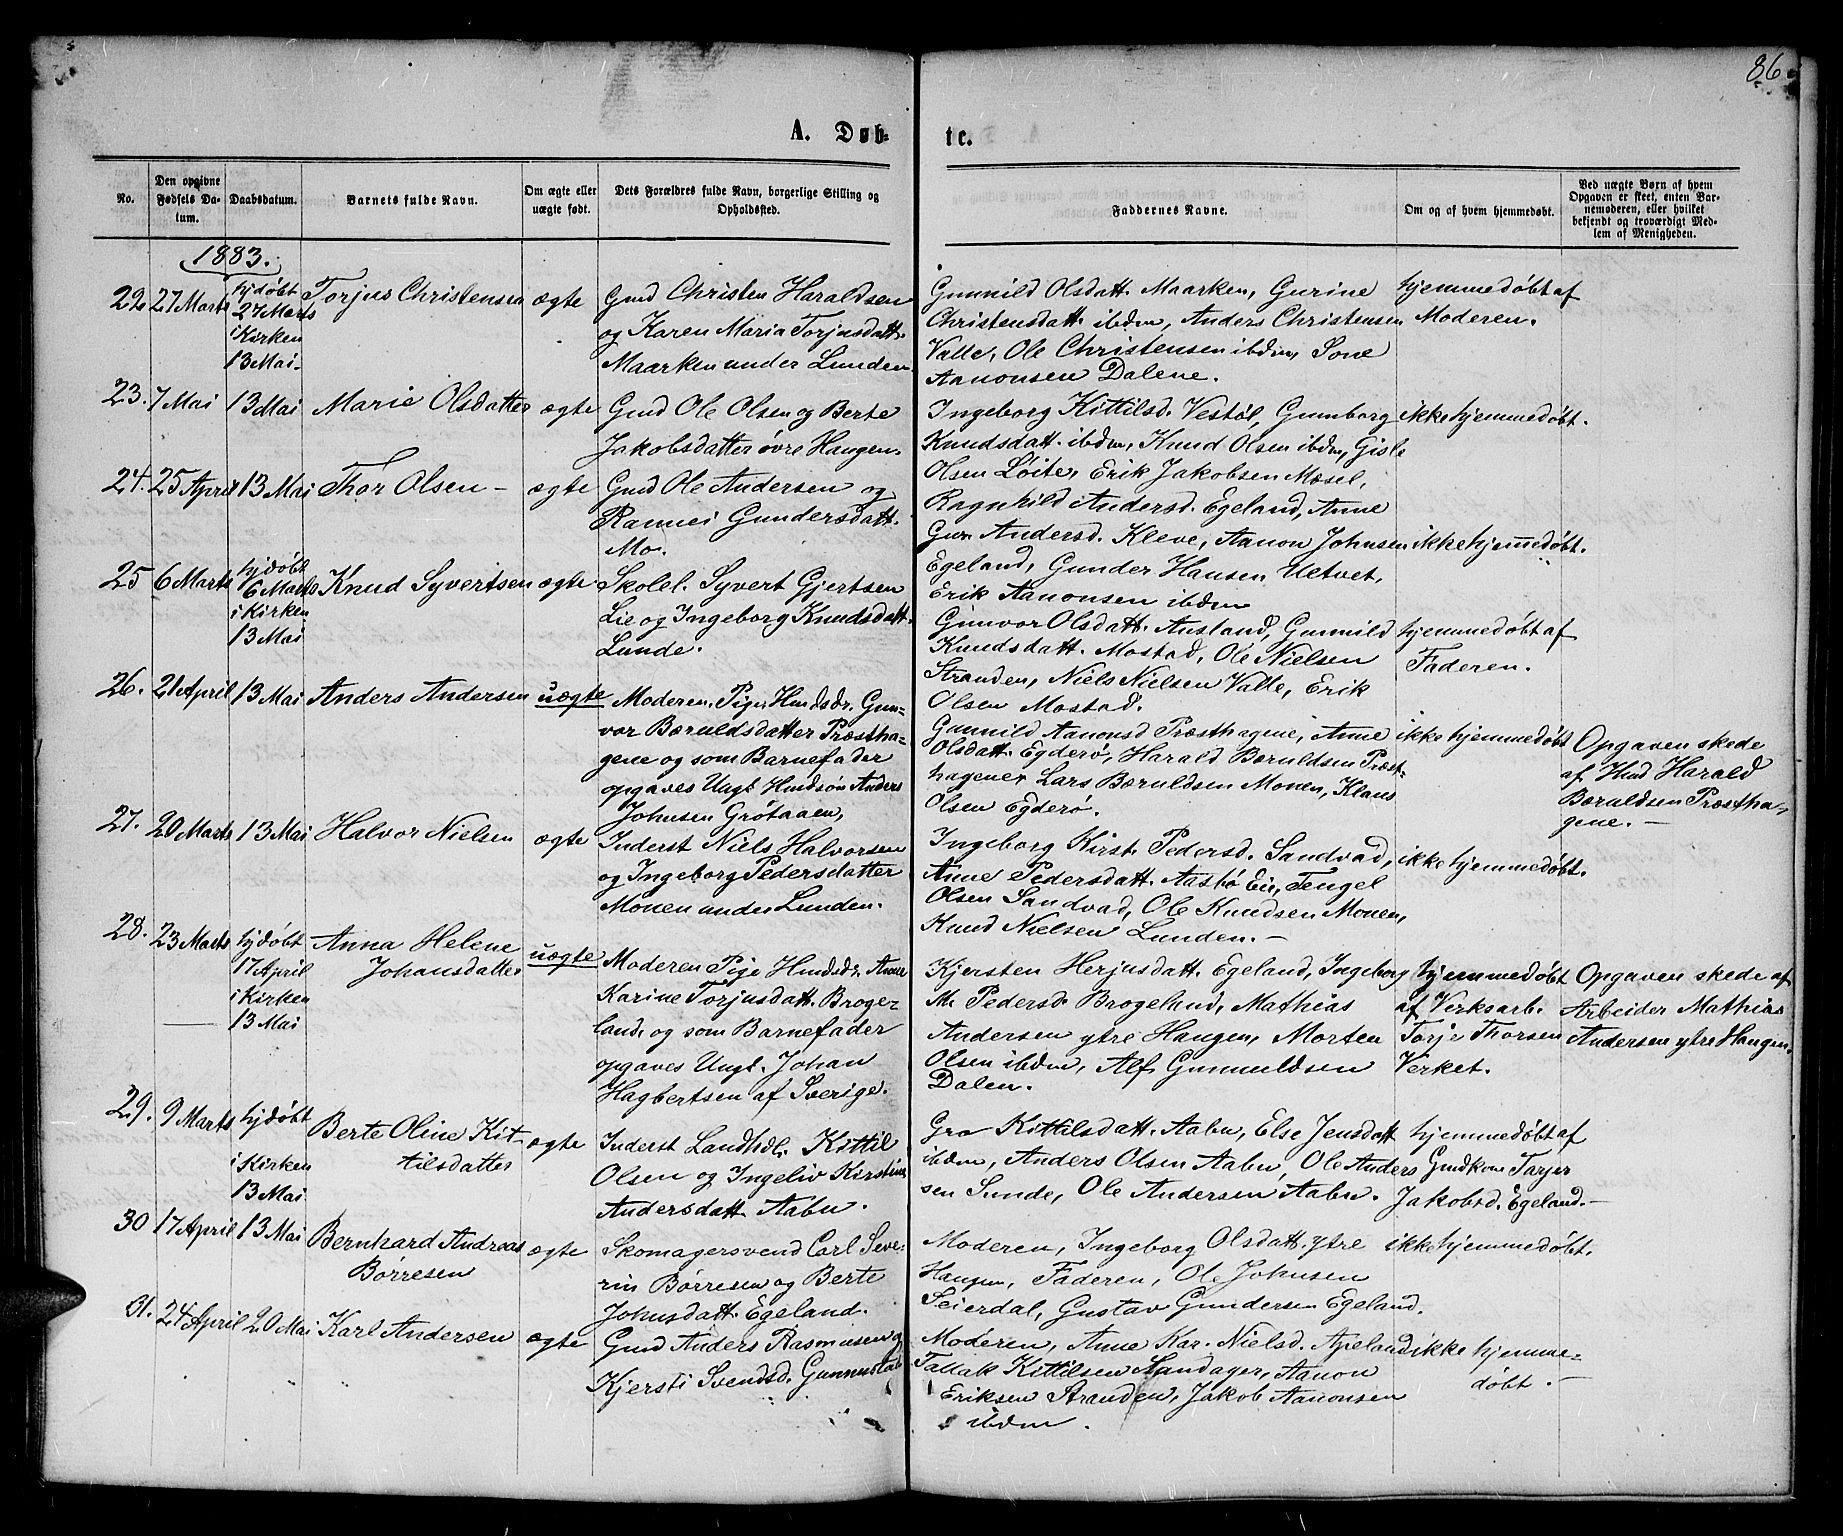 86
A. Døb-
te.
No.
Den opgivne Fødsels Datum.
Daabsdatum.
Barnets fulde Navn.
Om ægte eller uægte født.
Dets Forældres fulde Navn, borgerlige Stilling og Opholdssted.
Faddernes Navne.
Om og af hvem hjemmedøbt.
Ved uægte Børn af hvem Opgaven er skeet, enten Barnemoderen, eller hvilket bekjendt og troværdigt Medlem af Menigheden.
1883.
22. 27 Marts
hjdøbt
27 Marts
i Kirken
13 Mai.
Torjus Christensen
ægte
Gmd Christen Haraldsen
og Karen Maria Torjusdatt.
Maarken under Lunden.
Gunnild Olsdatt. Maarken, Gurine
Christensdatt. ibdm, Anders Christensen
Valle, Ole Christensen ibdm, Sone
Aanonsen Dalene.
hjemmedøbt af
Moderen.
23. 7 Mai
13 Mai
Marie Olsdatter
ægte
Gmd Ole Olsen og Berte
Jakobsdatter øvre Haugen.
Ingeborg Kittilsd. Vestøl, Gunborg
Knudsdatt. ibdm, Knud Olsen ibdm, Gisle
Olsen Løite, Erik Jakobsen Mæsel,
ikke hjemmedøbt.
24. 25 April
13 Mai
Thor Olsen -
ægte
Gmd Ole Andersen og
Rannei Gundersdatt.
Mo.
Ragnhild Andersd. Egeland, Anne
Gur. Andersd. Kleve, Aanon Johnsen
Egeland, Gunder Hansen Uetvet,
Erik Aanonsen ibdm
ikke hjemmedøbt.
25 6 Marts
hjdøbt
6 Marts
i Kirken
13 Mai
Knud Syvertsen
ægte
Skolel. Syvert Gjertsen
Lie og Ingeborg Knudsdatt.
Lunde.
Gunvor Olsdatt. Ausland, Gunnild
Knudsdatt. Mostad, Ole Nielsen
Stranden, Niels Nielsen Valle, Erik
Olsen Mostad.
hjemmedøbt af
Faderen.
26. 21 April
13 Mai
Anders Andersen
uægte
Moderen Pige Husdr. Gun-
vor Bæruldsdatter Præstha-
gene og som Barnefader
opgaves Ungk. Anders
Johnsen Grøtaaen,
Gunnild Aanonsd Præsthagene, Anne
Olsdatt. Egderø, Harald Bæruldsen Præst-
hagene, Lars Bæruldsen Monen, Klaus
Olsen Egderø.
ikke hjemmedøbt
Opgaven skede
af Harald
Bæruldsen Præstha-
gene. -
27. 20 Marts
13 Mai
Halvor Nielsen
ægte
Inderst Niels Halvorsen
og Ingeborg Pedersdatter
Monen under Lunden.
Ingeborg Kirst. Pedersd. Sandvad,
Anne Pedersdatt. Aasbø Eie, Tengel
Olsen Sandvad, Ole Knudsen Monen,
Knud Nielsen Lunden. -
ikke hjemmedøbt.
28. 23 Marts
hjdøbt
17 April
i Kirken
13 Mai
Anna Helene
Johansdatter
uægte
Moderen Pige Husdr. Anne
Karine Torjusdatt. Broge-
land, og som Barnefader
opgaves Ungk. Johan
Hagbertsen af Sverige.
Kjersten Herjusdatt. Egeland, Ingeborg
M. Pedersd Brogeland, Mathias
Andersen ytre Haugen, Morten
Olsen ibdm, Alf Gunnuldsen
Dalen.
hjemmedøbt
af Verksarb.
Torje Thorsen
Verket.
Opgaven skede af
Arbeider Mathias
Andersen ytre Haugen.
29. 9 Marts
hjdøbt
i Kirken
13 Mai
Berte Oline Kit-
tilsdatter
ægte
Inderst Landhdl. Kittil
Olsen og Ingeliv Kirstine
Andersdatt Aabu.
Gro Kittilsdatt. Aabu, Else Jensdatt
ibdm, Anders Olsen Aabu, Ole Anders
sen Lunde, Ole Andersen Aabu.
hjemmedøbt af
Gmdkone Tarjer
Jakobsd. Egeland. -
30 17 April
13 Mai
Bernhard Andreas
Børresen
ægte
Skomagersvend Carl Seve-
rin Børresen og Berte
Johnsdatt. Egeland.
Moderen, Ingeborg Olsdatt. ytre
Haugen, Faderen, Ole Johnsen
Seierdal, Gustav Gundersen Egeland.
ikke hjemmedøbt.
31. 24 April
20 Mai
Karl Andersen
ægte
Gmd Anders Rasmusen og
Kjersti Svendsd. Gunnus
Moderen, Anne Kar. Nielsd. Apeland
Tallak Kittilsen Sandager, Aanon
Eriksen Stranden, Jakob Aanonsen
ibdm.
ikke hjemme-
døbt. -